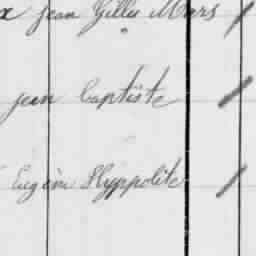 x Jean Gilles Mars
jean Baptiste
Eugène Hyppolite